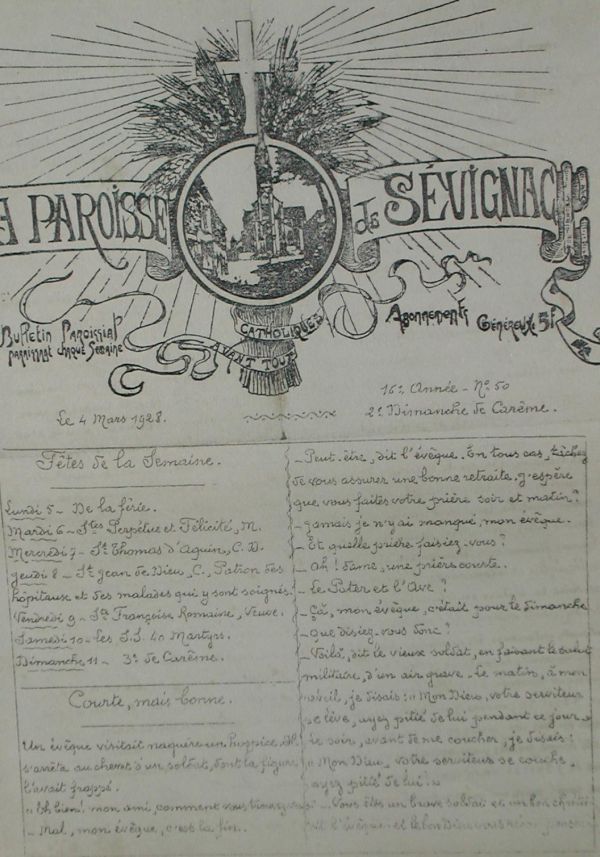 A PAROISSE de SÉVIGNAC
Bulletin Paroissial
paraissant chaque Semaine
CATHOLIQUES
AVANT TOUT
Abonnements
Généreux 5f
Le 4 Mars 1928.
16e Année - No 50
2e Dimanche de Carême.
Fêtes de la Semaine.
Lundi 5 - De la férie.
Mardi 6 - Stes Perpétue et Félicité, M.
Mercredi 7 - St Thomas d'Aquin, C. D.
Jeudi 8 - St Jean de Dieu, C., Patron des
hôpitaux et des malades qui y sont soignés.
Vendredi 9 - Ste Françoise Romaine, Veuve.
Samedi 10 - les S.S. 40 Martyrs.
Dimanche 11 - 3e de Carême.
Courte, mais bonne.
Un évêque visitait naguère un hospice. Il
s'arrêta au chevet d'un soldat, dont la figure
l'avait frappé.
« Eh bien! mon ami, comment vous
- Mal, mon évêque, c'est la fin.
- Peut-être, dit l'évêque. En tous cas, tâchez
de vous assurer une bonne retraite. J'espère
que vous faites votre prière soir et matin?
- Jamais je n'y ai manqué, mon évêque.
- Et quelle prière faisiez-vous?
- Ah! dame, une prière courte.
- Le Pater et l'Ave?
- Çà, mon évêque, c'était pour le dimanche
- Que disiez-vous donc?
- Voilà, dit le vieux soldat, en faisant le salut
militaire, d'un air grave. Le matin, à mon
réveil, je disais: « Mon Dieu, votre serviteur
se lève, ayez pitié de lui pendant ce jour.
Le soir, avant de me coucher, je disais:
« Mon Dieu, votre serviteur se couche,
ayez pitié de lui! »
- Vous êtes un brave soldat et un bon chrétien
dit l'évêque, et le bon Dieu vous